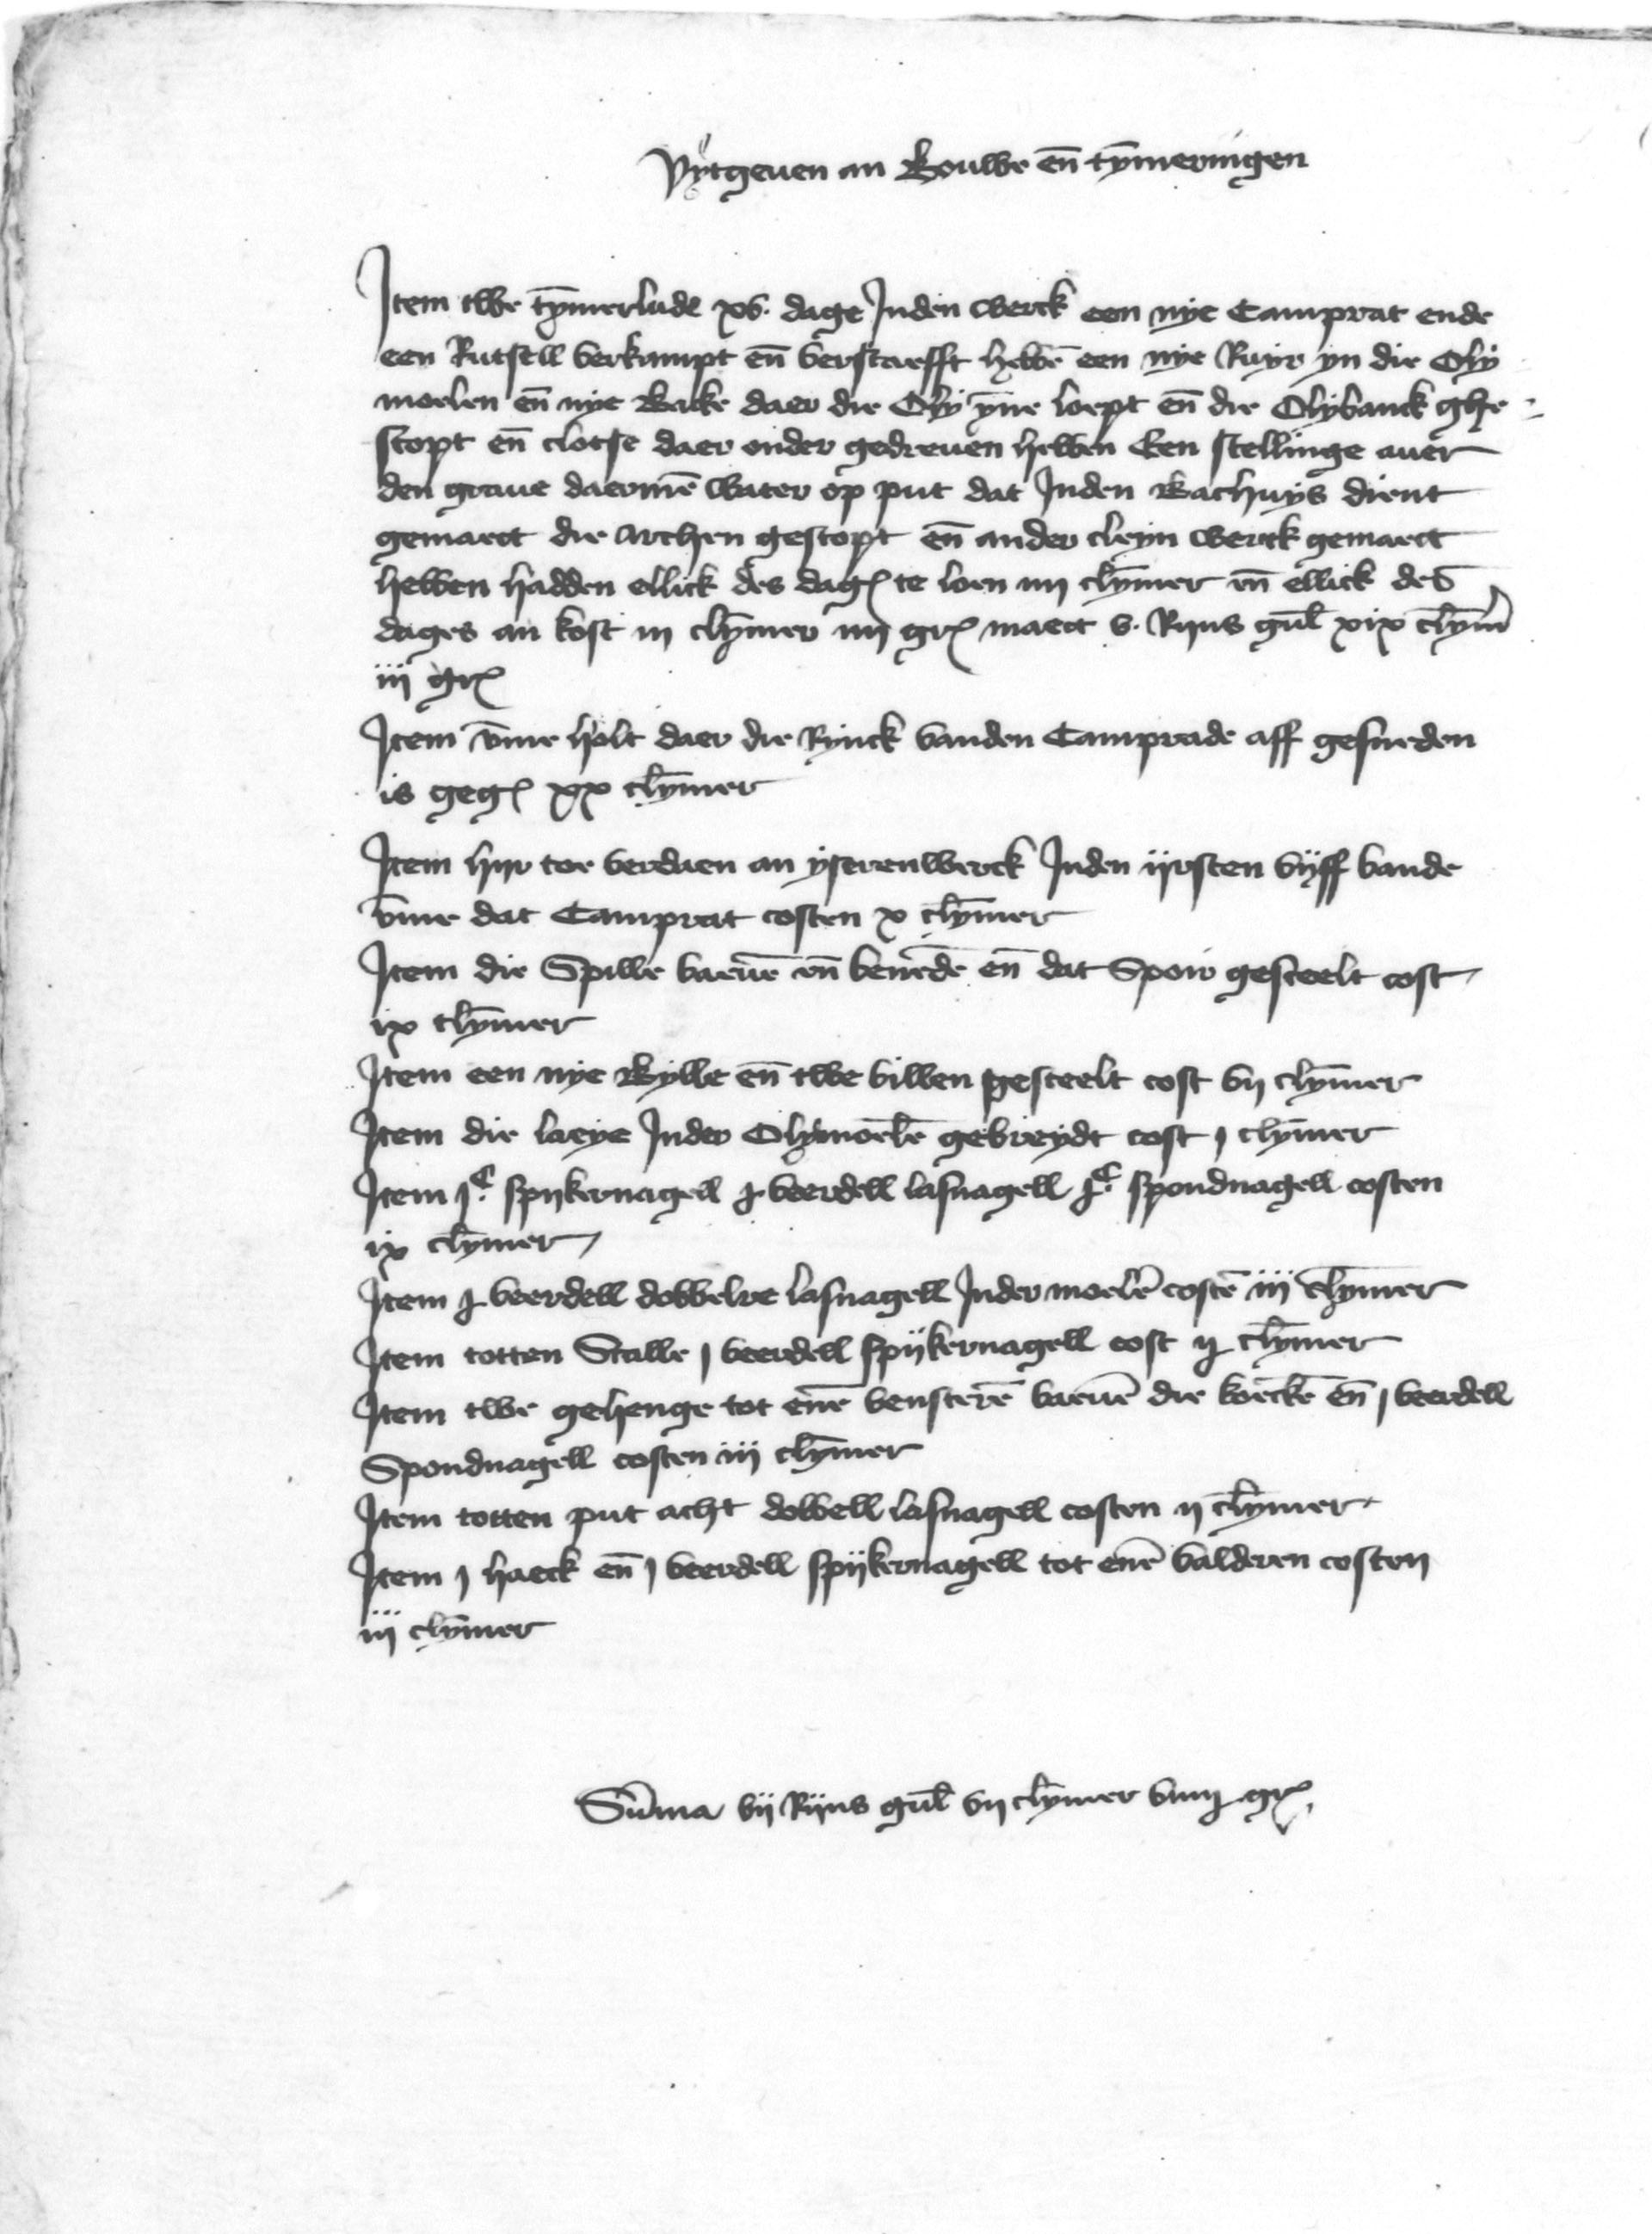 Vytgeuen an Bouwe en̄ tȳmeringen
Item twe tȳmerlude xv. dage Inden werck een nye Camprat ende
een Rutsell verkampt en̄ verstaefft hebbē een nye Ruyr yn die Oly
moelen en̄ nye Backe daer die Oly ȳne loept en̄ die Olybanck ghe
stopt en̄ clotse daer onder gedreuen hebben Een stellinge auer
den graue daermē water op put dat Inden Backhuys dient
gemaect die archen gestopt en̄ ander cleyn werck gemaect
hebben hadden ellick des dagꝭ te loen iiij clȳmer en̄ ellick des
dages an kost iij clȳmer iiij grꝭ maect v. Rijns gul̄ xix clȳm̄
iij grꝭ
Item v̄me holt daer die Rynck vanden Camprade aff gesneden
is gegꝭ xx clȳmer
Item hijr toe verdaen an yserenwerck Inden ijrsten vijff bande
v̄me dat Camprat costen x clȳmer
Item die Spille baeuē en̄ benedē en̄ dat Spoir gesteelt cost
ix clȳmer
Item een nye Bylle en̄ twe billen gesteelt cost vij clȳmer
Item die laeye Inder Olymoelē gebreydt cost j clȳmer
Item jᶜ. spijkernagell j veerdell lasnagell jᶜ. spondnagell costen
ix clȳmer
Item j veerdell dobbelre lasnagell Inder moelē costē iij clȳmer
Item totten Stalle j veerdell spijkernagell cost ij clȳmer
Item twe gehenge tot enē vensterē baeuē die koeckē en̄ j veerdell
Spondnagell costen iij clȳmer
Item totten put acht dobbell lasnagell costen ij clȳmer
Item j haeck en̄ j veerdell spijkernagell tot enē valderen costen
iij clȳmer
Sūma vij Rijns gul̄ vij clȳmer viiij grꝭ